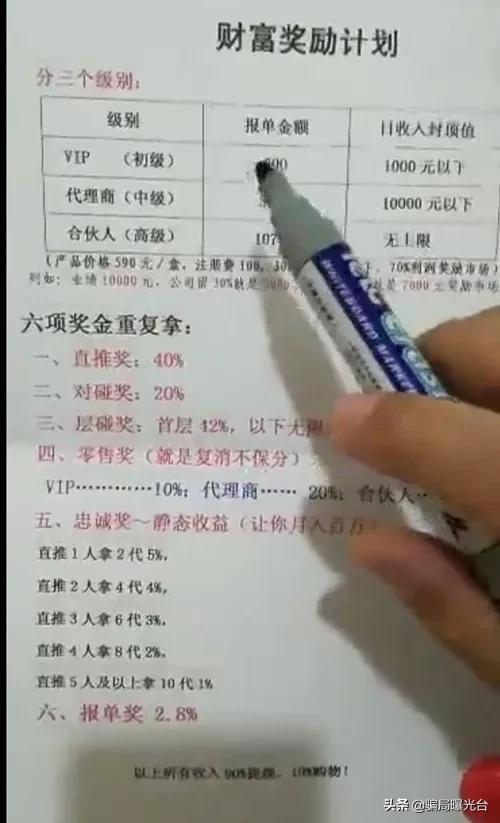 财富奖励计划
分三个级别：
级别 报单金额 日收入封顶值
VIP （初级） 1000 元以下
代理商（中级） 10000 元以下
合伙人（高级） 107 无上限
（产品价格 590 元/盒，注册费 100，30 下，70%利润奖励市场）
列如：业绩 10000 元，公司留 30%就是 是 7000 元奖励市场
六项奖金重复拿：
一、直推奖：40%
二、对碰奖：20%
三、层碰奖：首层 42%，以下无限
四、零售奖（就是复消不保分）
VIP…………10%；代理商…… 20%；合伙人
五、忠诚奖～静态收益（让你月入百万）
直推 1 人拿 2 代 5%，
直推 2 人拿 4 代 4%，
直推 3 人拿 6 代 3%，
直推 4 人拿 8 代 2%，
直推 5 人及以上拿 10 代 1%
六、报单奖 2.8%
以上所有收入 90%提现，10%购物！
WHITEBOARD MARKER
头条 @骗局曝光台